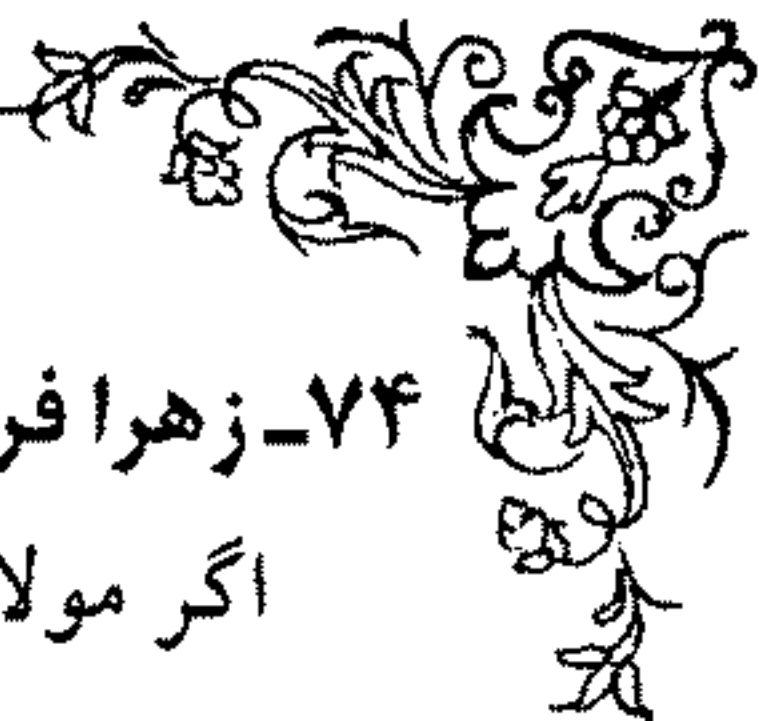 ۷۴ـ زهرا فر
اگر مولا